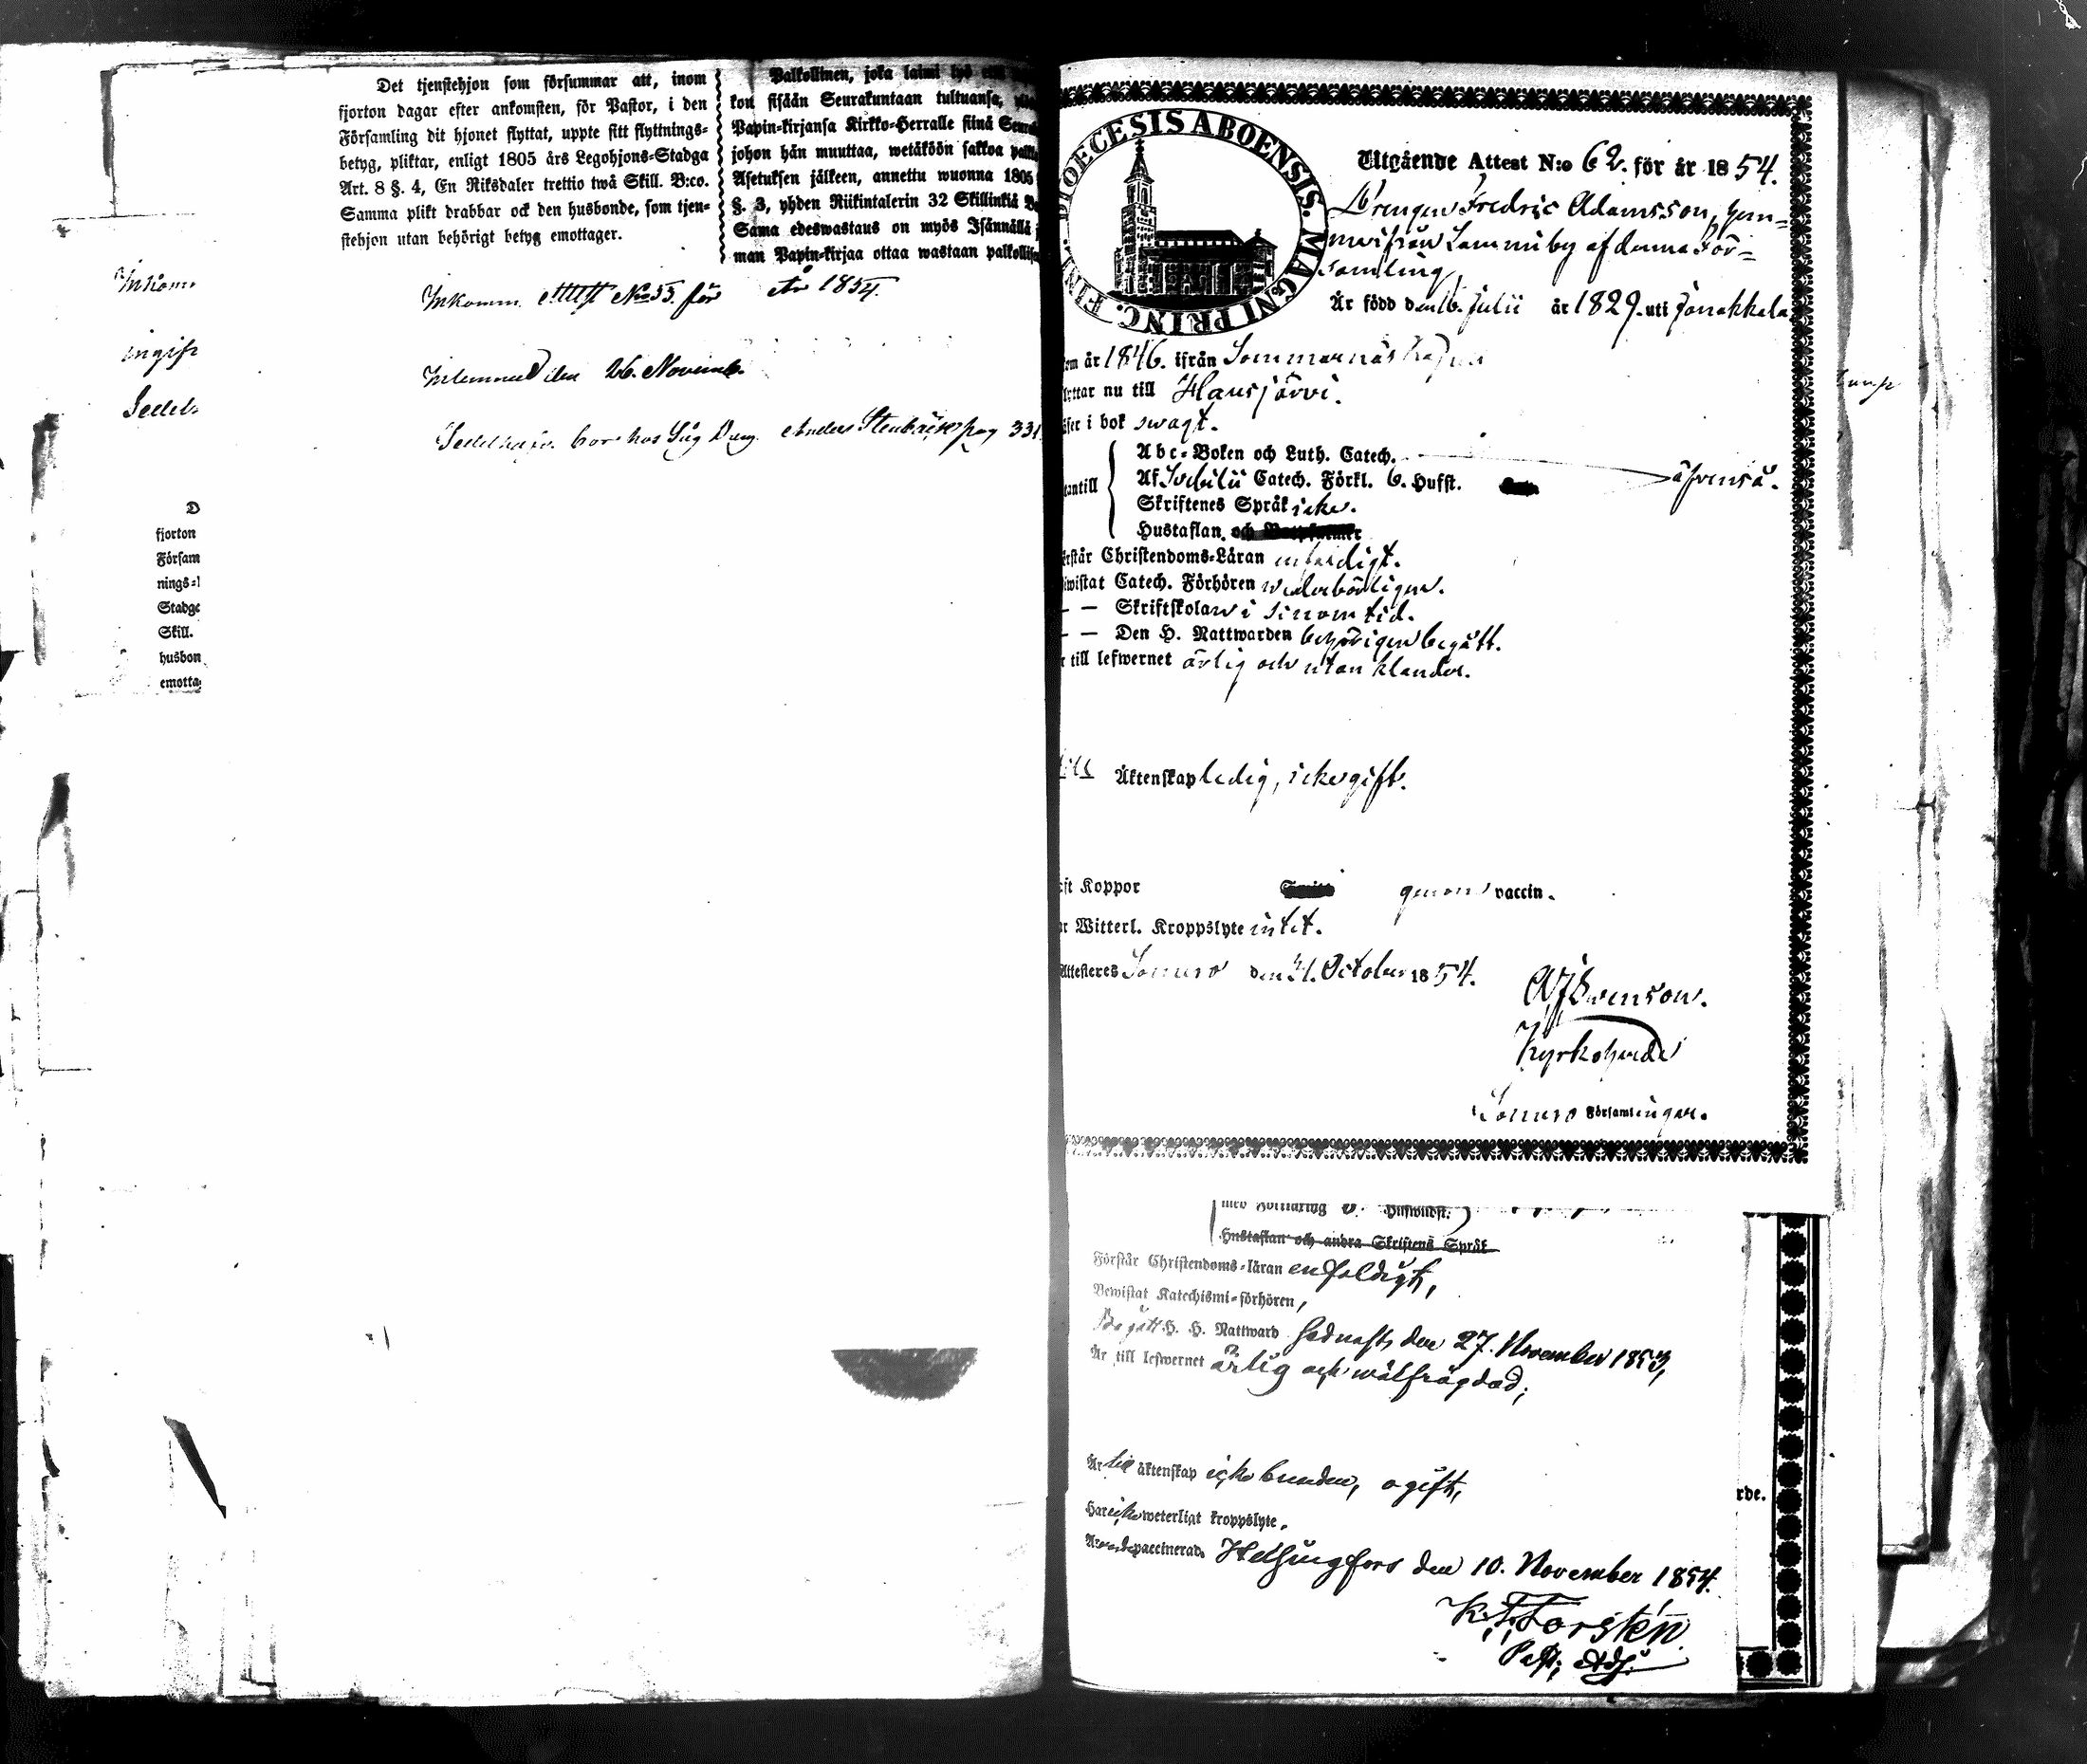 Det tjenstehjon som försummar att, inom
fjorton dagar efter ankomsten, för Pastor, i den
Församling dit hjonet flyttat, uppte sitt flyttnings-
betyg, pliktar, enligt 1805 års Legohjons-Stadga
Art. 8 §. 4, En Riksdaler trettio twå Skill. B:co.
Samma plikt drabbar ock den husbonde, som tjen-
stehjon utan behörigt betyg emottager.
Palkollinen, joka laimi lyö
kon sisään Seurakuntaan tultuansa,
Papin-kirjansa Kirkko-Herralle siinä
johon hän muuttaa, wetäköön sakkoa
Asetuksen jälkeen, annettu wuonna 1805
§. 3, yhden Riikintalerin 32 Skillinkiä
Sama edeswastaus on myös Isännällä
man Papin-kirjaa ottaa wastaan
Inkomm. Attest No 55. för År 1854.
Inlemnad den 26. Novemb.
bor hos Anders pag 331
D
fjorton
Försam
nings-
Stadge
Skill.
husbon
emotta
DIOECESIS ABOENSIS. MAGNI PRINC. FINL.
Utgående Attest N:o 62. för år 1854.
Drengen Fredric Adamsson, hem-
ma ifrån Lammiby af denna För-
samling,
Är född den 16. Julii år 1829. uti Janakkala
om år 1846. ifrån Sommarnäs
nu till Hausjärvi.
i bok swagt.
Abc-Boken och Luth. Catech.
Af Svebilii Catech. Förkl. 6. Hufst. äfvenså.
Skriftenes Språk icke.
Hustaflan.
Christendoms-Läran enfaldigt.
Catech. Förhören wederbörligen.
— — Skriftskolan i sinom tid.
— — Den H. Nattwarden behörigen begått.
till lefwernet ärlig och utan klander.
till Äktenskap ledig, icke gift.
Koppor genom vaccin.
Witterl. Kroppslyte intet.
Attesteres Somero den 31. October 1854.
Svenson.
Kyrkoherde
Somero Församlingar.
Hustaflan och andra Skriftens Språk
Förstår Christendoms-läran enfaldigt,
Bewistat Katechismi-förhören,
Begått H. H. Nattward sednast den 27. November 1853,
Är till lefwernet ärlig och wälfrägdad;
Är till äktenskap icke bunden, ogift,
Har icke weterligt kroppslyte,
vaccinerad. Helsingfors den 10. November 1854.
K. F. Forstén
Past. Adj.
rde.